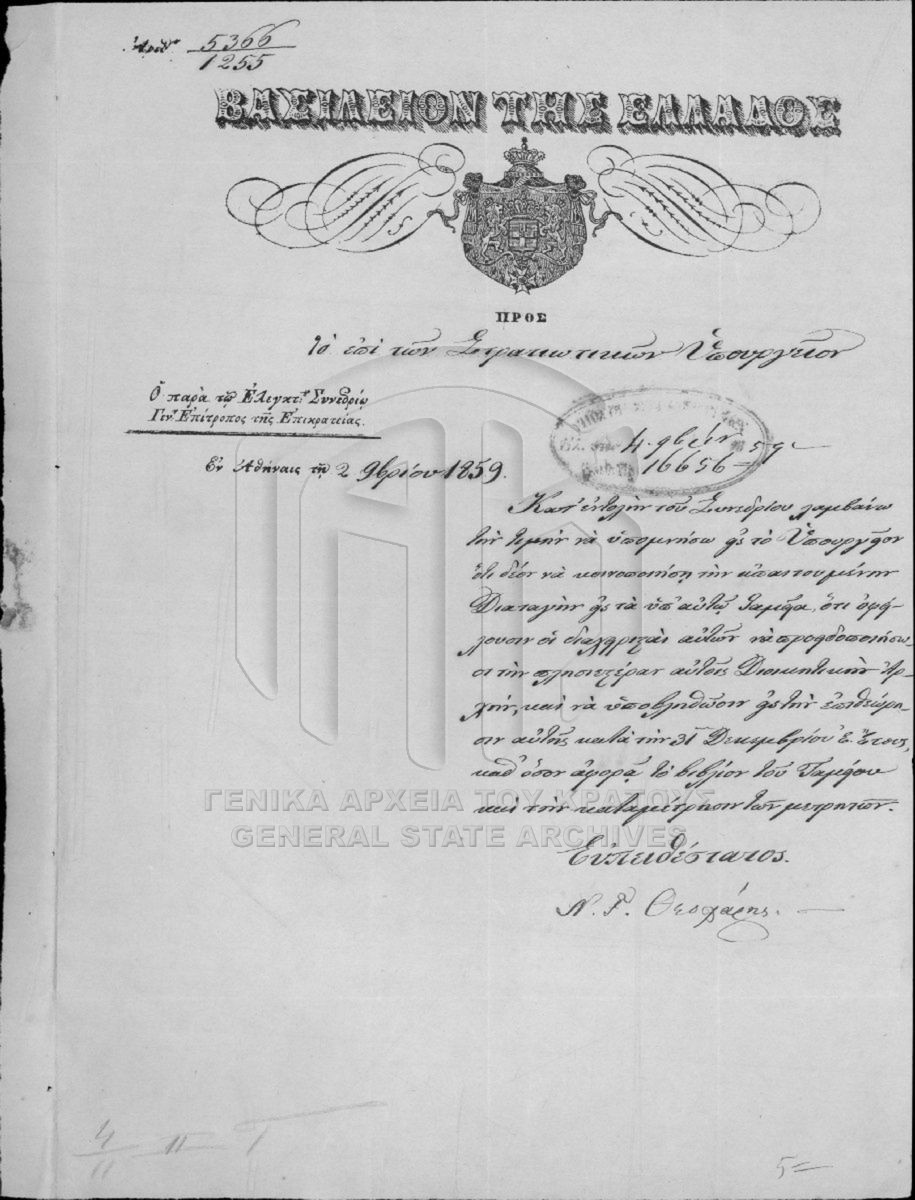 Ἀριθ. 5366
1255
ΒΑΣΙΛΕΙΟΝ ΤΗΣ ΕΛΛΑΔΟΣ
ΠΡΟΣ
τὸ ἐπὶ τῶν Στρατιωτικῶν Ὑπουργεῖον
Ὁ παρὰ τῷ Ἐλεγκτ. Συνεδρίῳ
Γεν. Ἐπίτροπος τῆς Ἐπικρατείας.
4. 9βρίου 59
16656
Ἐν Ἀθήναις τῇ 2 9βρίου 1859.
Κατ' ἐντολὴν τοῦ Συνεδρίου λαμβάνω
τὴν τιμὴν νὰ ὑπομνήσω εἰς τὸ Ὑπουργεῖον
ὅτι δέον νὰ κοινοποιήσῃ τὴν ἀπαιτουμένην
Διαταγὴν εἰς τὰ ὑπ' αὐτῷ ταμεῖα, ὅτι ὀφεί-
λουσιν οἱ διαχειρισταὶ αὐτῶν νὰ προειδοποιήσω-
σι τὴν πλησιεστέραν αὐτοῖς Διοικητικὴν Ἀρ-
χήν, καὶ νὰ ὑποβληθῶσιν εἰς τὴν ἐπιθεώρη-
σιν αὐτῆς κατὰ τὴν 31 Δεκεμβρίου ἐ. ἔτους,
καθ' ὅσον ἀφορᾷ τὸ βιβλίον τοῦ Ταμείου
καὶ τὴν καταμέτρησιν τῶν μετρητῶν.
ΓΕΝΙΚΑ ΑΡΧΕΙΑ ΤΟΥ ΚΡΑΤΟΥΣ
GENERAL STATE ARCHIVES
Εὐπειθέστατος.
Ν. Γ. Θεοχάρης.
4
11
5=